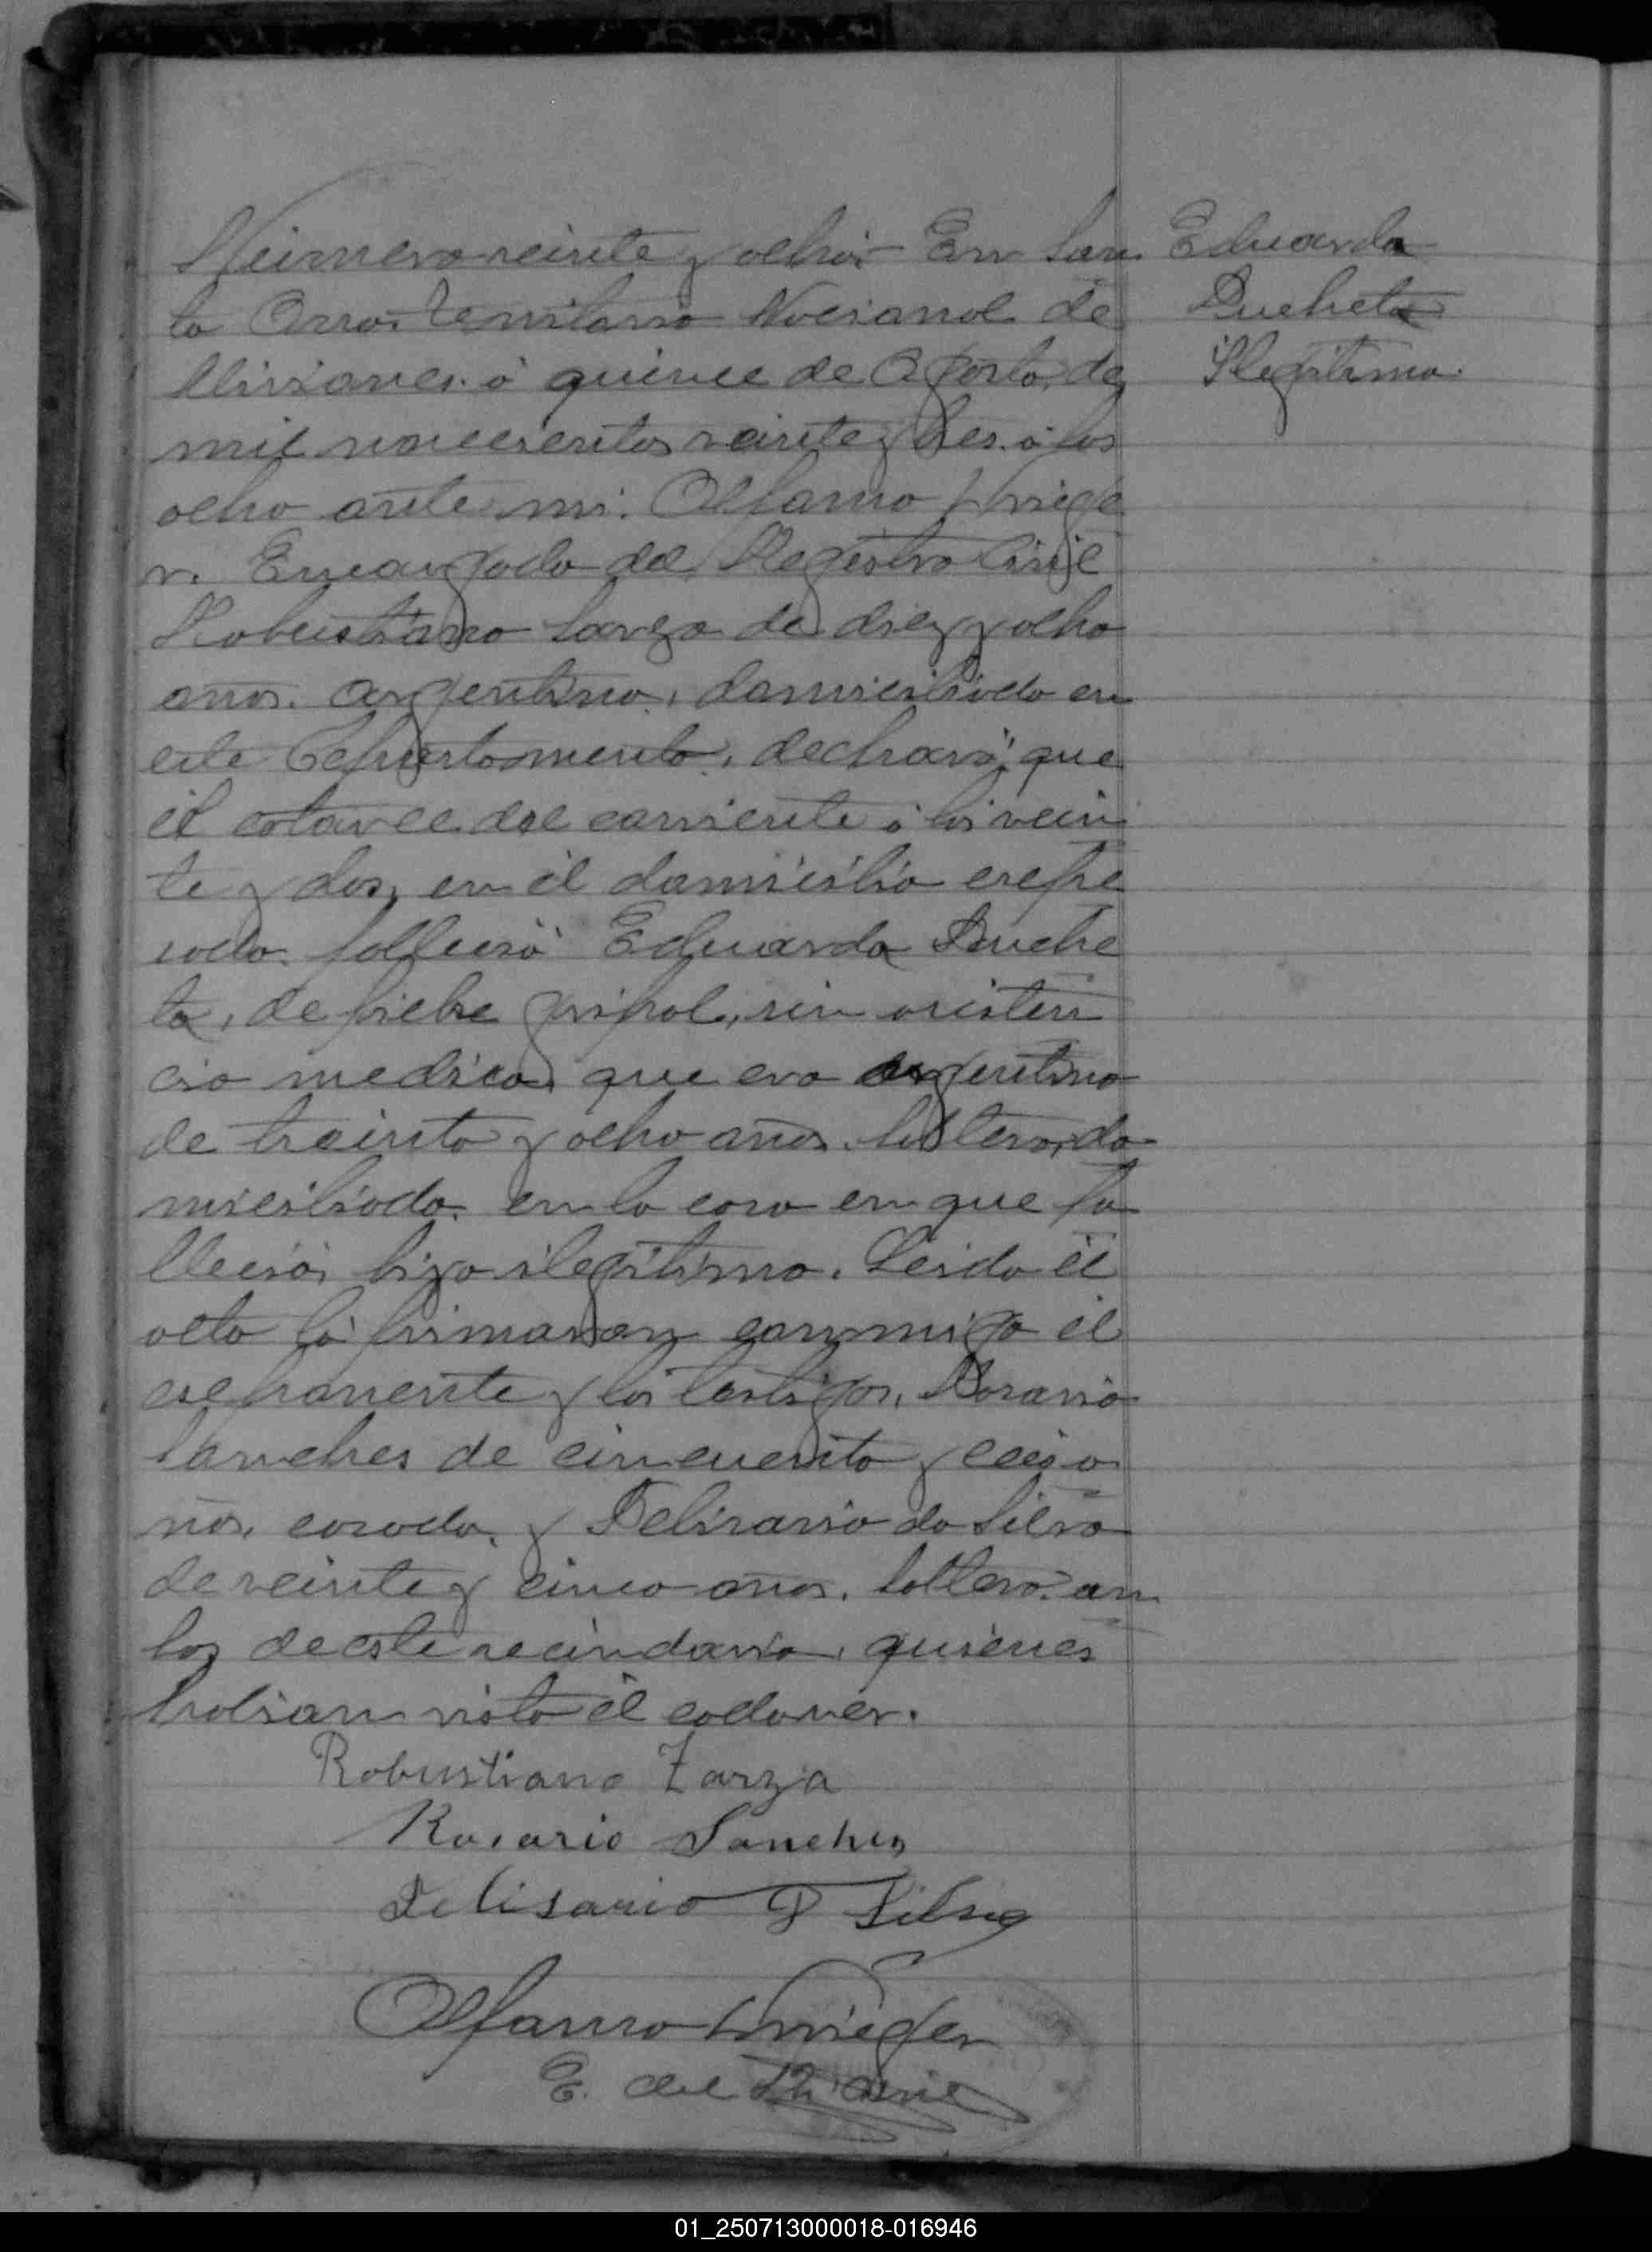 Número veinte y ocho: En San
ta Ana, Territorio Nacional de
Misiones, á quince de Agosto, de
mil novecientos veinte y tres, á las
ocho ante mi, Alfamo
r. Encargado del Registro Civil
Robustiano Sarza de diez y ocho
años, argentino, domiciliado en
este Departamento, declaró, que
el catorce del corriente á las vein
te y dos, en él domicilio expre
sado, falleció Eduarda Duche
ta, de fiebre gripal, sin asisten
cia medica, que era argentina
de treinta y ocho años, soltera, do
miciliada en la casa en que fa
lleció, hija ilegítima. Leida él
acta la firmaron conmigo él
exponente y los testigos, Rosario
Sanches de cincuenta y seis a
ños, casado, y Belisario da Silva
de veinte y cinco años, soltero, am
bos de este vecindario, quienes
habian visto él cadaver.
Robustiano Zarza
Rosario Sanches
Belisario D Silva
Alfamo
E. del R. Civil
Eduarda
Ducheta
Ilegítima.
01_250713000018-016946